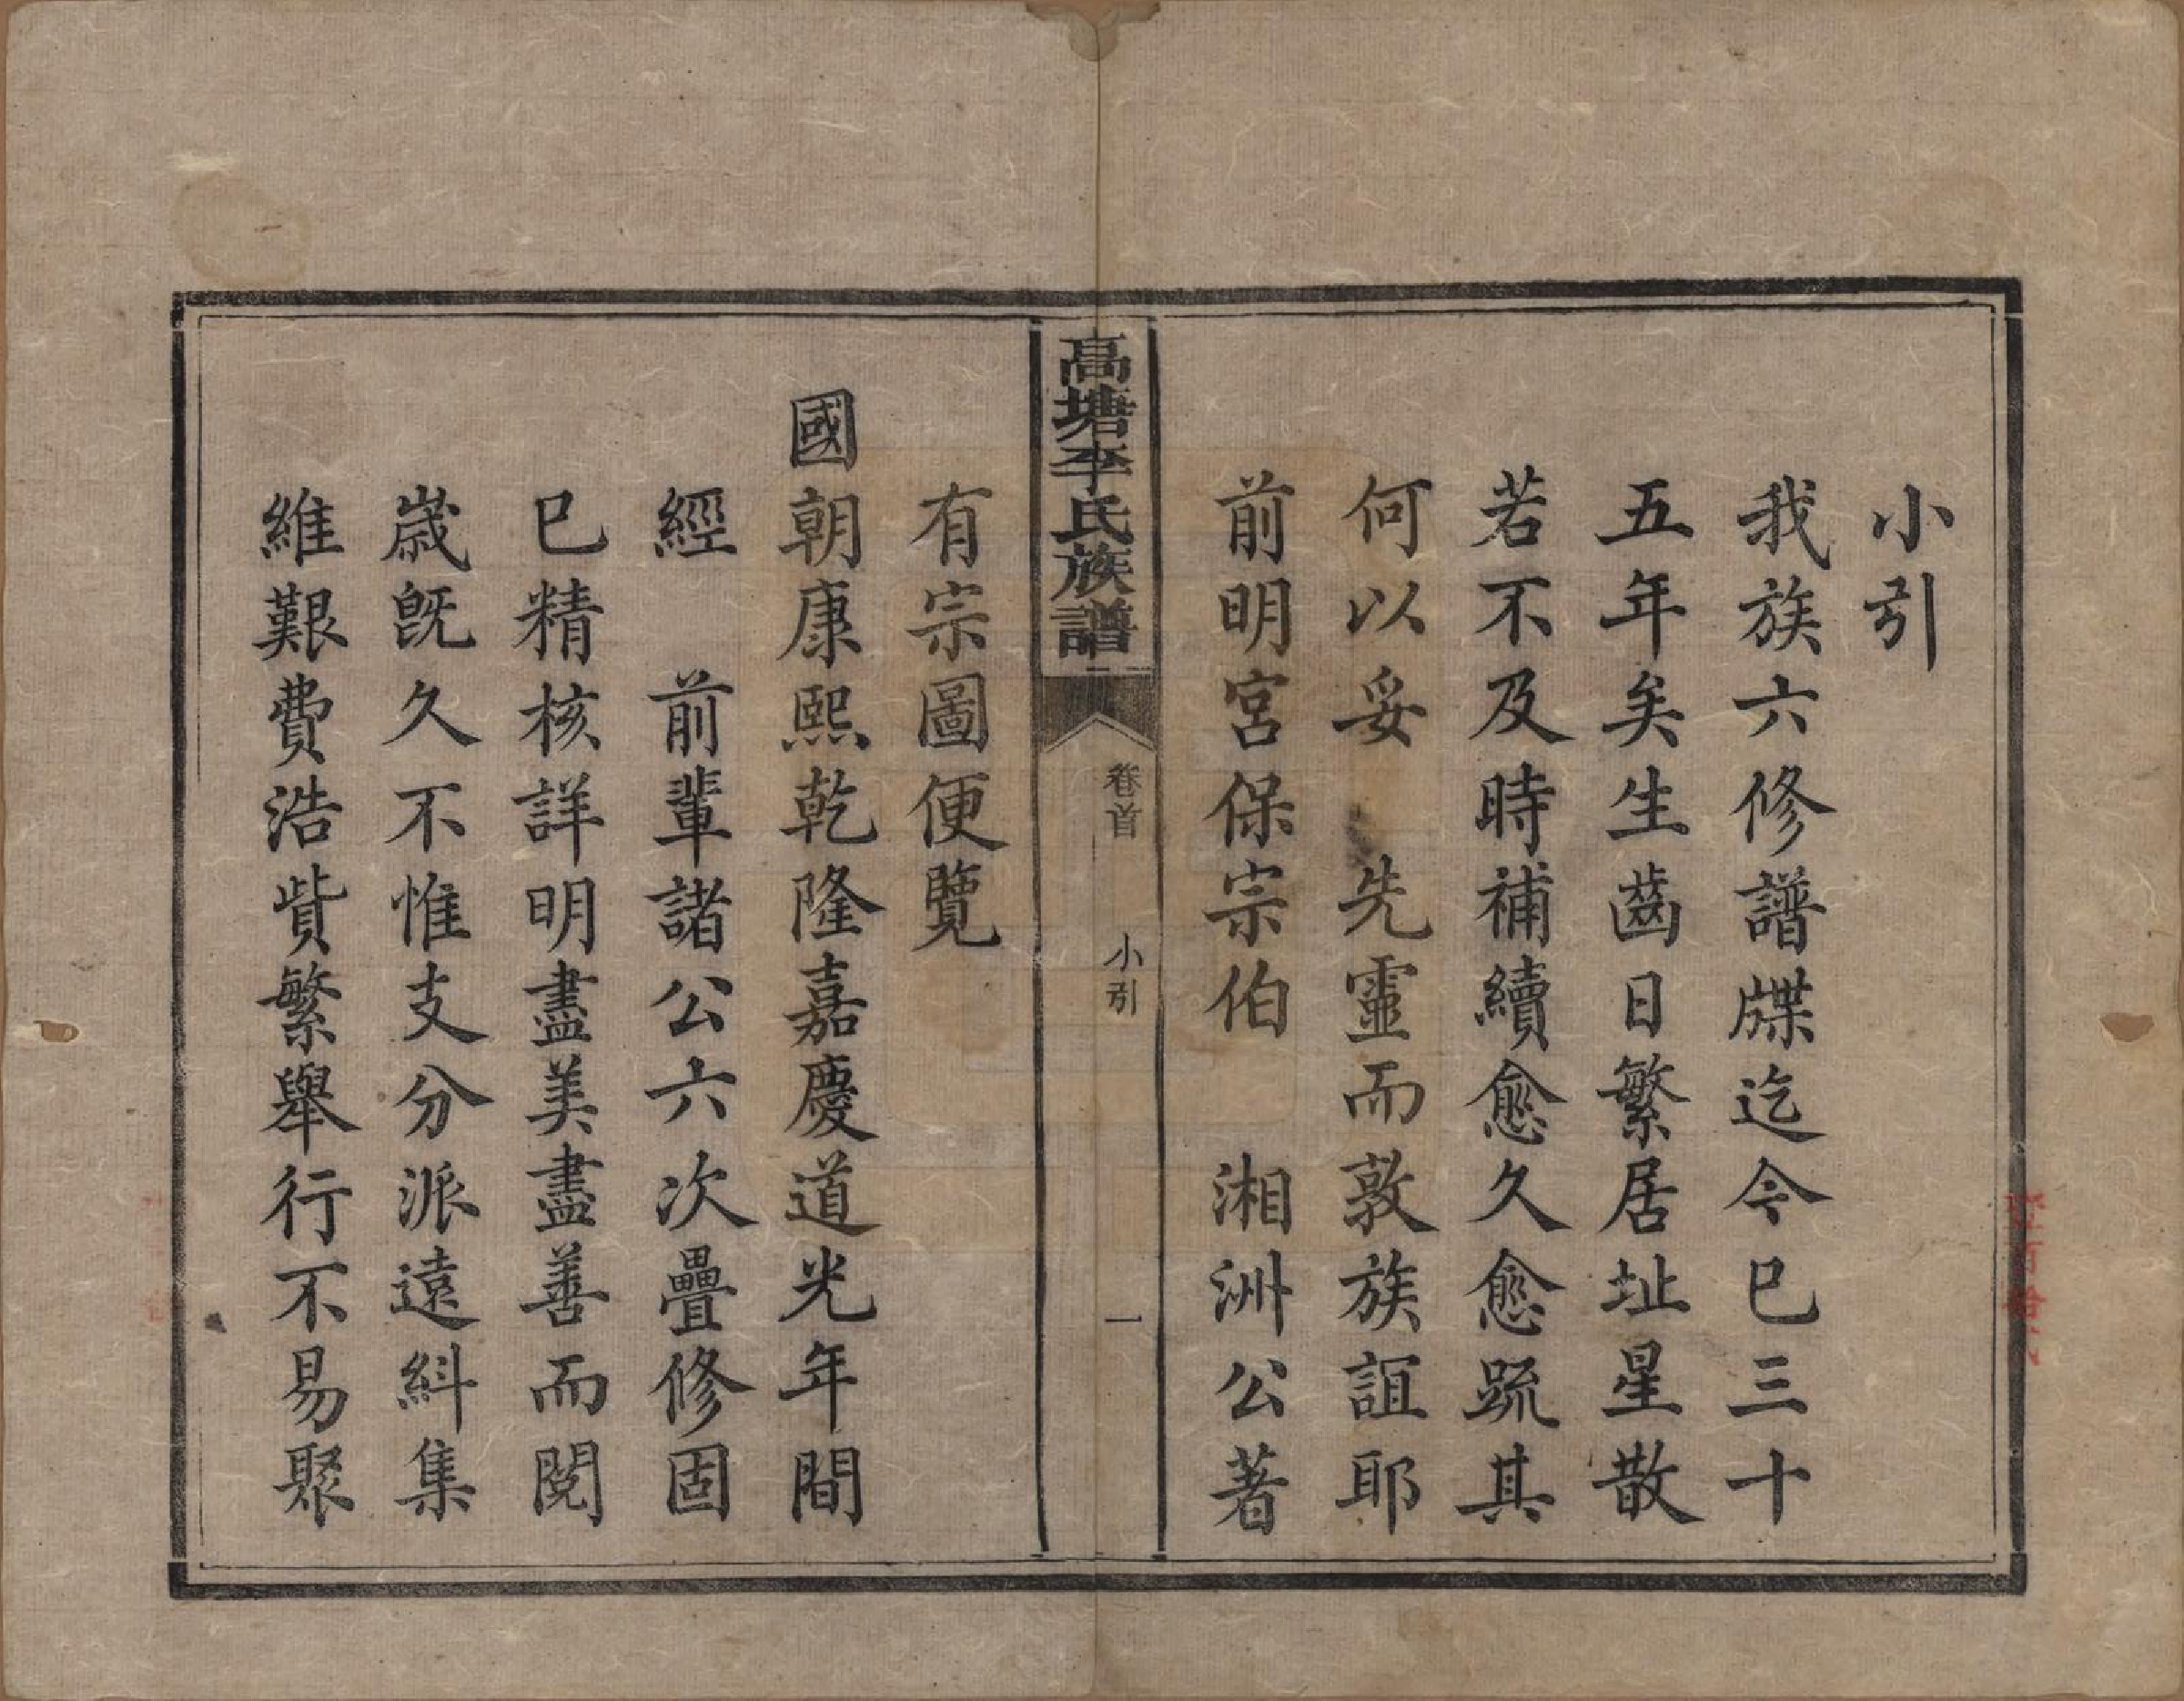 小引
我族六修譜牒迄今已三十
五年矣生齒日繁居址星散
若不及時補續愈久愈疏其
何以妥　先靈而敦族誼耶
前明宮保宗伯　湘洲公著
高塘李氏族譜
卷首　小引　一
有宗圖便覽
國朝康熙乾隆嘉慶道光年間
經　前輩諸公六次疊修固
已精核詳明盡美盡善而閱
歲既久不惟支分派遠糾集
維艱費浩貲繁舉行不易聚